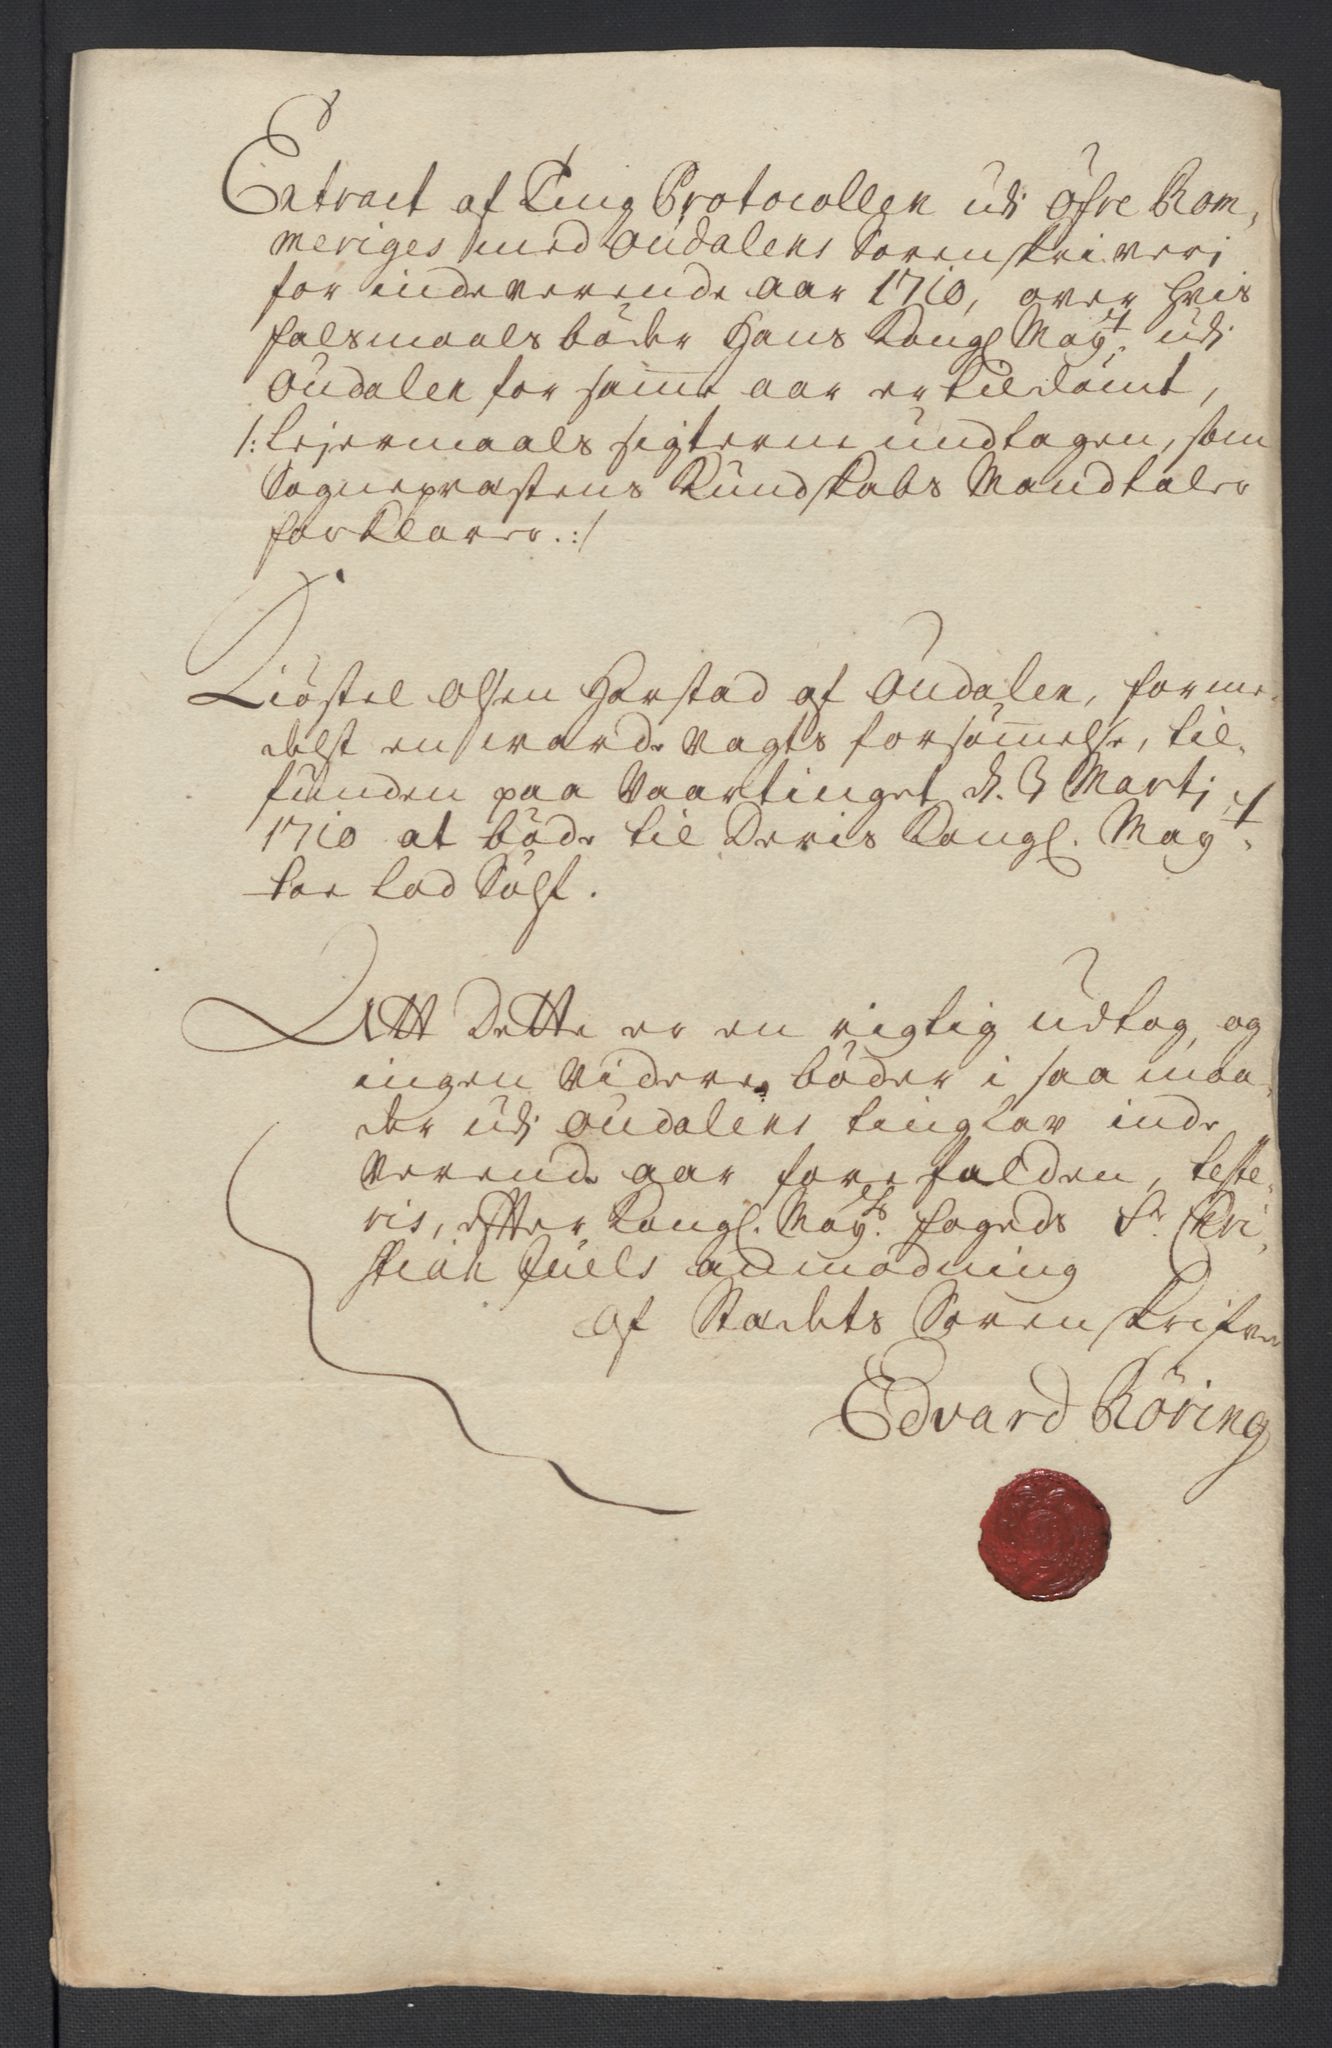 Extract af Ting Protocollen udi öfre Rom,
meriges med Oudalens Sorenskriveri
for indeverende aar 1710, over hvis
falsmaals böder Hans Kongl May.t udi
Oudalen for samme aar er tildömt,
/: Lejermaals sigterne undtagen, som
Sognepræstens Kundskabs Mandtaler
forklarer. :/
Kiöstel Olsen Harstad af Oudalen, forme-
delst en warde vagts forsömmelse, til-
funden paa Vaartinget d. 3 Martj
1710 at böde til Deris Kongl. May.t
toe Lod Sölf.
Att Dette er en rigtig udtog, og
ingen videre böder i saa maa-
der udi Oudalens tinglav inde
verende aar forefalden, teste-
ris, efter Kongl. May.ts fogeds Sr. Chri,
stian Juels anmodning
Af Stædets Sorenskrifver
Edvard Röring